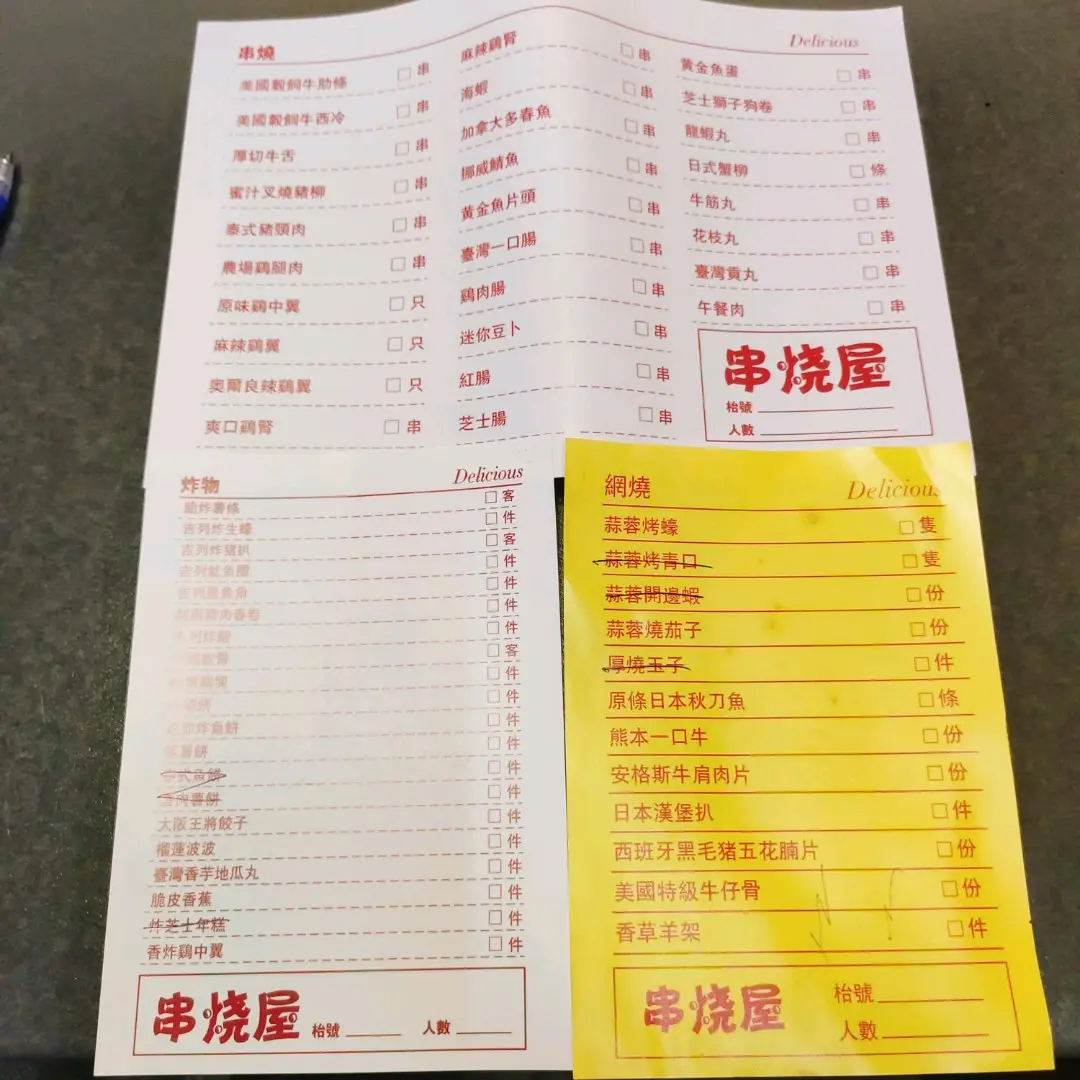 串燒
Delicious
美國穀飼牛肋條 □ 串
美國穀飼牛西冷 □ 串
厚切牛舌 □ 串
蜜汁叉燒豬柳 □ 串
泰式豬頸肉 □ 串
農場鷄腿肉 □ 串
原味鷄中翼 □ 只
麻辣鷄翼 □ 只
奧爾良辣鷄翼 □ 只
爽口鷄腎 □ 串
麻辣鷄腎 □ 串
海蝦 □ 串
加拿大多春魚 □ 串
挪威鯖魚 □ 串
黃金魚片頭 □ 串
臺灣一口腸 □ 串
鷄肉腸 □ 串
迷你豆卜 □ 串
紅腸 □ 串
芝士腸 □ 串
黃金魚蛋 □ 串
芝士獅子狗卷 □ 串
龍蝦丸 □ 串
日式蟹柳 □ 條
牛筋丸 □ 串
花枝丸 □ 串
臺灣貢丸 □ 串
午餐肉 □ 串
串烧屋
枱號
人數
炸物
Delicious
脆炸薯條 □ 客
吉列炸生蠔 □ 件
吉列炸豬扒 □ 客
□ 件
□ 件
□ 件
□ 件
□ 客
□ 件
□ 件
炸魚餅 □ 件
薯餅 □ 件
□ 件
薯餅 □ 件
大阪王將餃子 □ 件
榴蓮波波 □ 件
臺灣香芋地瓜丸 □ 件
脆皮香蕉 □ 件
炸芝士年糕 □ 件
香炸鷄中翼 □ 件
串烧屋
枱號
人數
網燒
Delicious
蒜蓉烤蠔 □ 隻
蒜蓉烤青口 □ 隻
蒜蓉開邊蝦 □ 份
蒜蓉燒茄子 □ 份
厚燒玉子 □ 件
原條日本秋刀魚 □ 條
熊本一口牛 □ 份
安格斯牛肩肉片 □ 份
日本漢堡扒 □ 件
西班牙黑毛猪五花腩片 □ 份
美國特級牛仔骨 □ 份
香草羊架 □ 件
串烧屋
枱號
人數